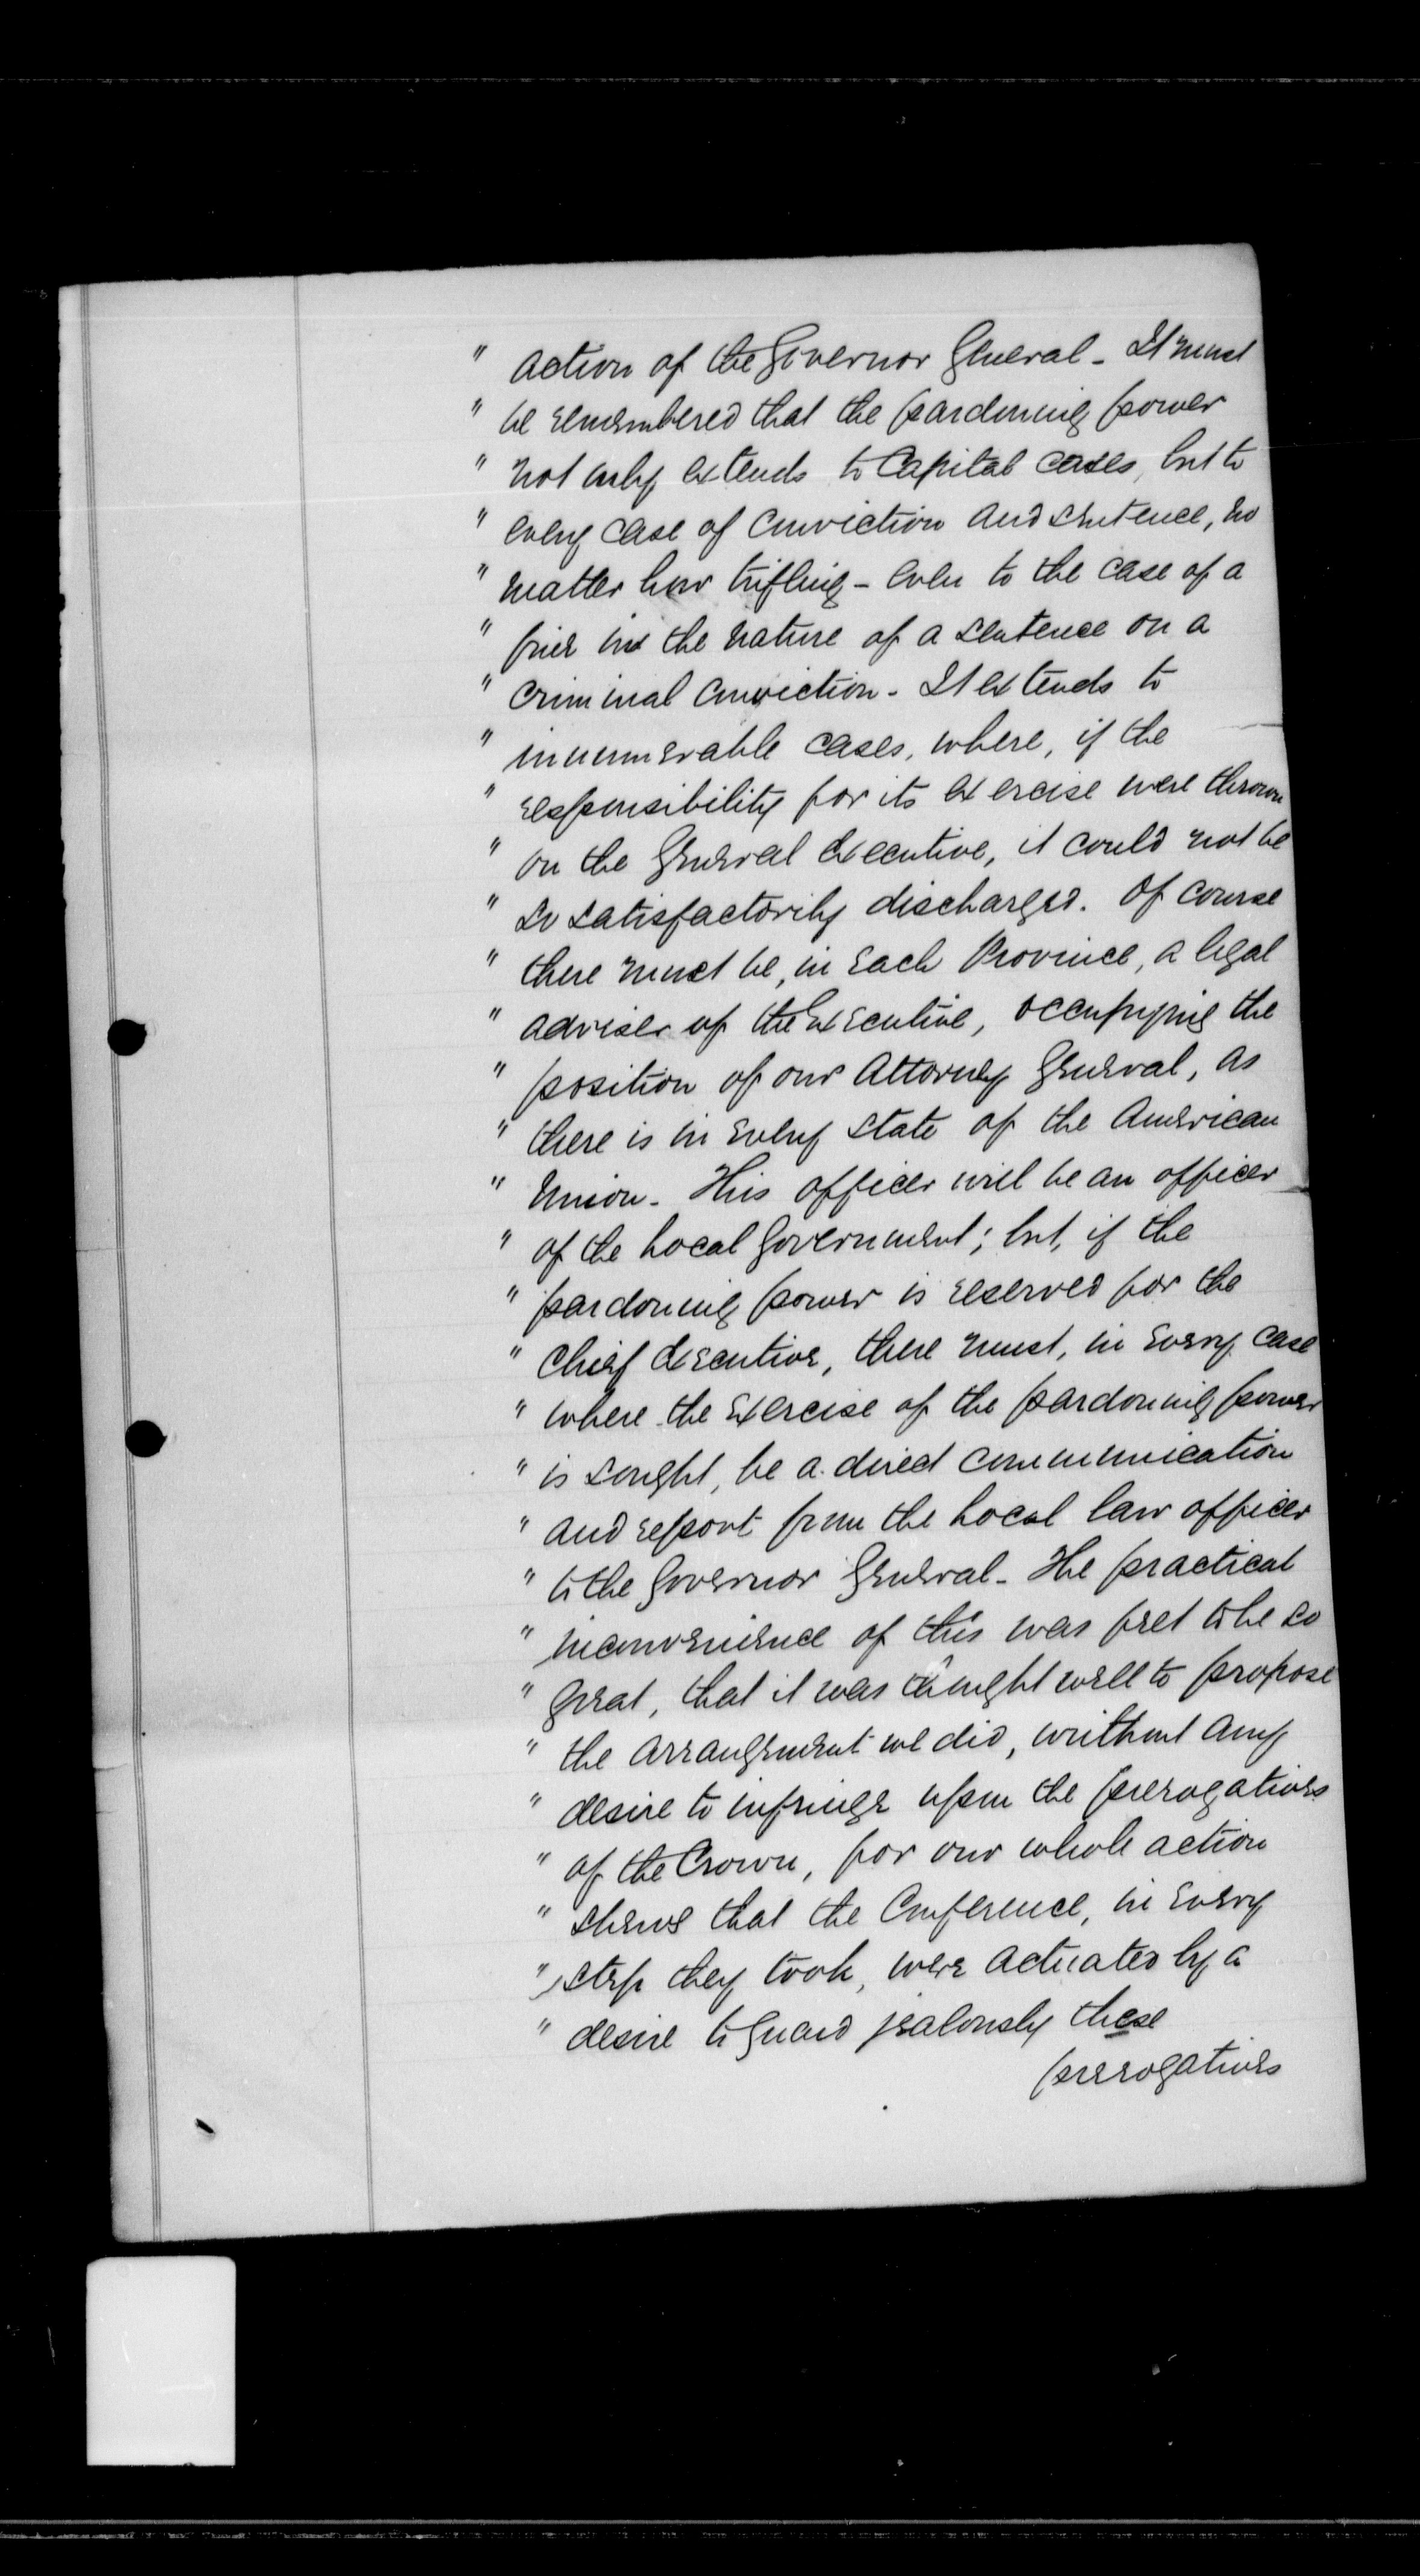 " action of the Governor General - It must
" be remembered that the pardoning power
" not only extends to Capital cases, but to
" every case of conviction and sentence, no
" matter how trifling - even to the case of a
" fine in the nature of a sentence on a
" criminal conviction - It extends to
" innumerable cases, where, if the
" responsibility for its exercise were thrown
" on the General Executive, it could not be
" so satisfactorily discharged. Of course
" there must be, in each Province, a legal
" adviser of the Executive, occupying the
" position of our Attorney General, as
" there is in every State of the American
" Union - This officer will be an officer
" of the Local Government; but, if the
" pardoning power is reserved for the
" Chief Executive, there must, in every case
" where the exercise of the pardoning power
" is sought, be a direct communication
" and report from the Local law officer
" to the Governor General - The practical
" inconvenience of this was felt to be so
" great, that it was thought well to propose
" the arrangement we did, without any
" desire to infringe upon the prerogatives
" of the Crown, for our whole action
" shews that the Conference, in every
" step they took, were actuated by a
" desire to guard jealously these
prerogatives